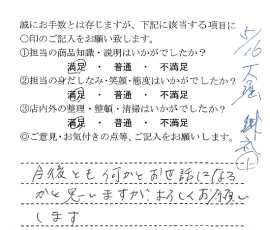 誠にお手数とは存じますが、下記に該当する項目に
〇印のご記入をお願い致します。
①担当の商品知識・説明はいかがでしたか？
満足 ・ 普通 ・ 不満足
②担当の身だしなみ・笑顔・態度はいかがでしたか？
満足 ・ 普通 ・ 不満足
③店内外の整理・整頓・清掃はいかがでしたか？
満足 ・ 普通 ・ 不満足
◎ご意見・お気付きの点等、ご記入をお願いします。
今後とも何かとお世話になる
かと思いますが、よろしくお願い
します
5/16